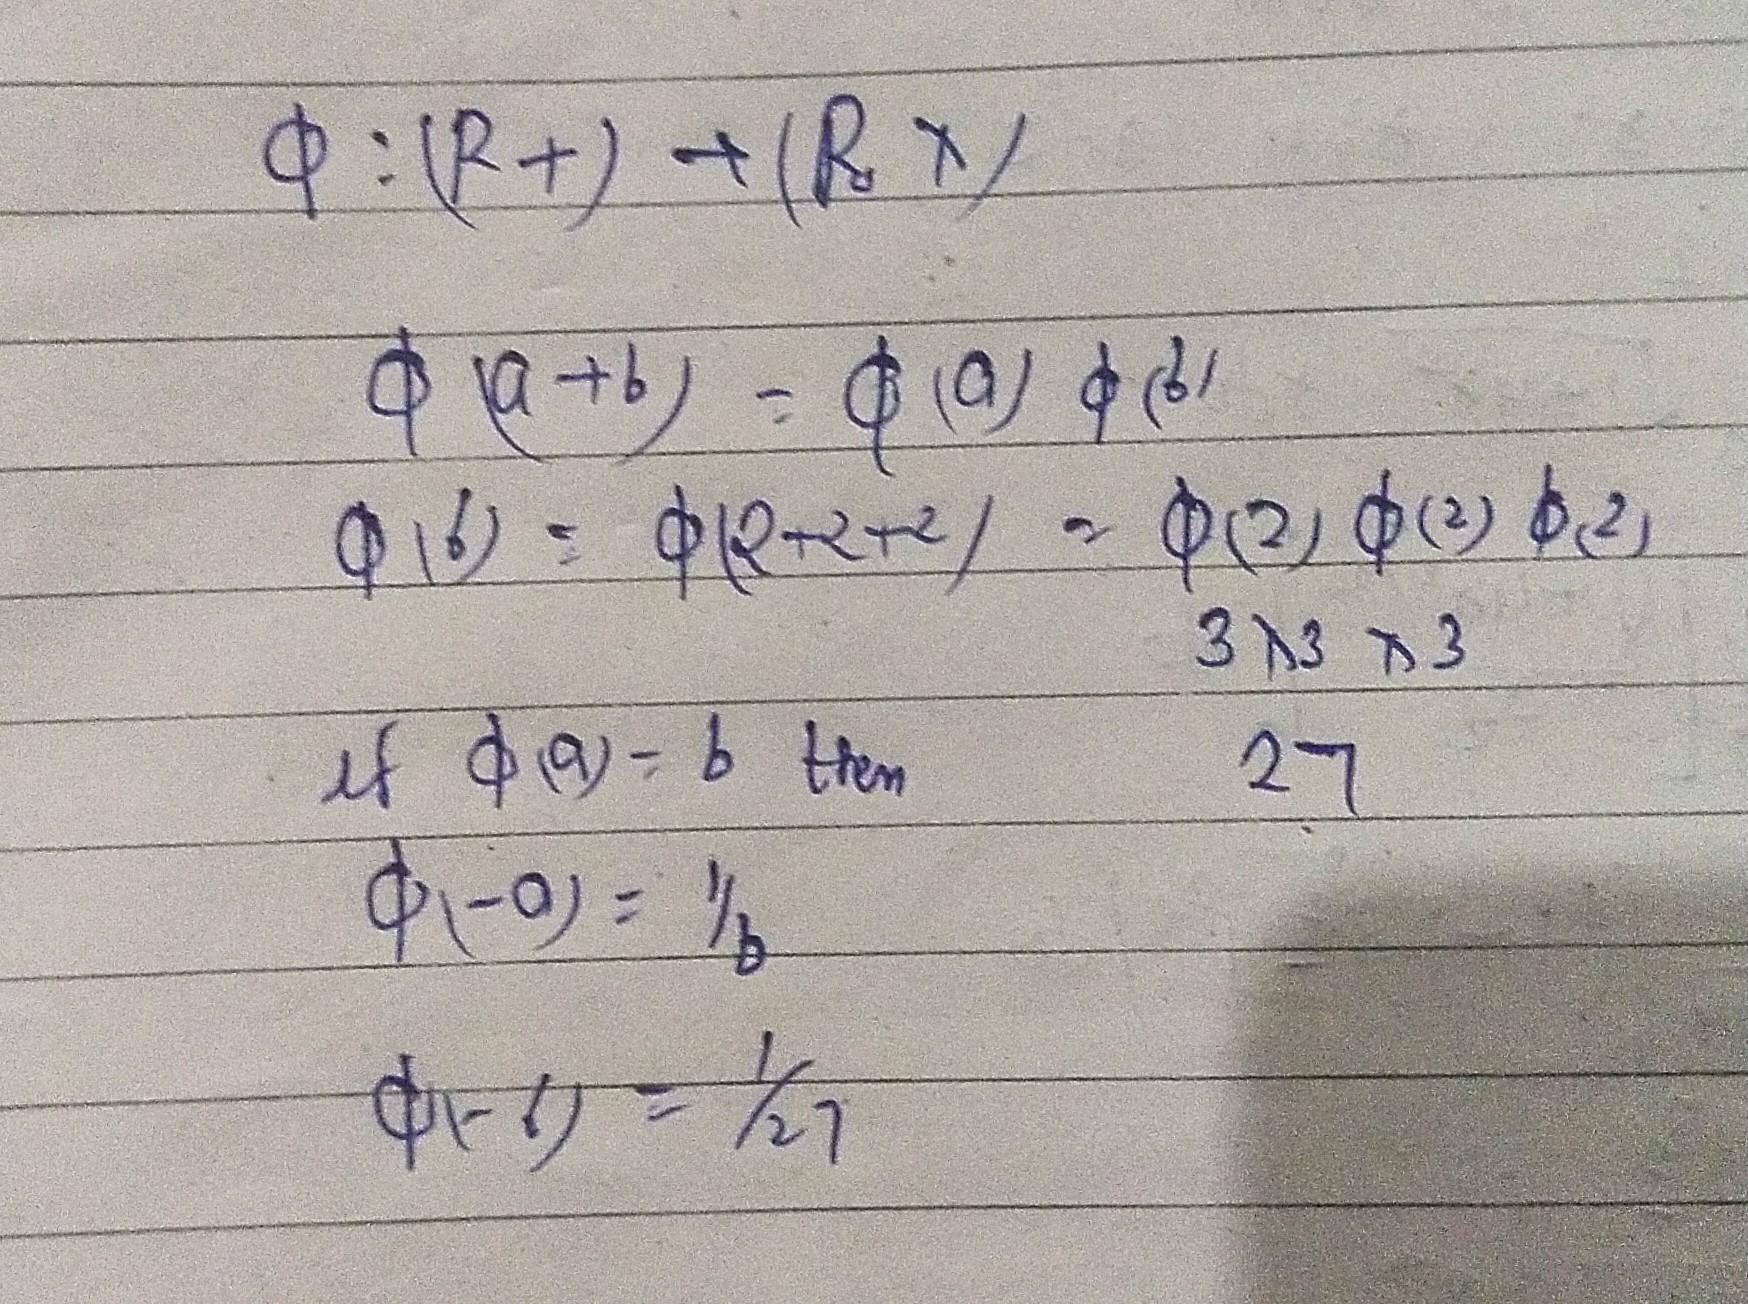 ϕ : (R +) → (R₀ ×)
ϕ (a + b) = ϕ (a) ϕ (b)
ϕ (6) = ϕ(2+2+2) = ϕ(2) ϕ(2) ϕ(2)
3 × 3 × 3
if ϕ(a) = b then 27
ϕ(-a) = 1/b
ϕ(-6) = 1/27